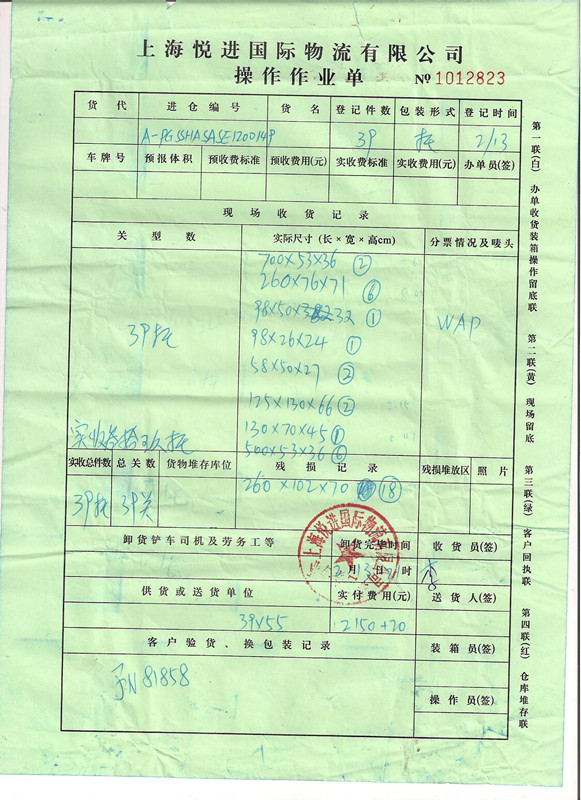 上海悦进国际物流有限公司
操作作业单 № 1012823
货代 进仓编号 货名 登记件数 包装形式 登记时间
A-PGSSHASASE1200149 39 托 2/13
车牌号 预报体积 预收费标准 预收费用(元) 实收费标准 实收费用(元) 办单员(签)
现场收货记录
关型数 实际尺寸（长×宽×高cm） 分票情况及唛头
700×53×36 ②
260×76×71 ⑥
98×50×32 ①
39托 WAP
98×26×24 ①
58×50×27 ②
175×130×66 ②
130×70×45 ①
实收叁拾玖托 500×53×36 ⑥
实收总件数 总关数 货物堆存库位 残损记录 残损堆放区 照片
260×102×70 ⑱
39托 39关
卸货铲车司机及劳务工等 卸货完毕时间 收货员(签)
上海悦进国际物流有限公司
2月 日 时
供货或送货单位 实付费用(元) 送货人(签)
39V55 2150+20
客户验货、换包装记录 装箱员(签)
苏N81858
操作员(签)
第一联(白) 办单收货装箱操作留底联 第二联(黄) 现场留底 第三联(绿) 客户回执联 第四联(红) 仓库堆存联